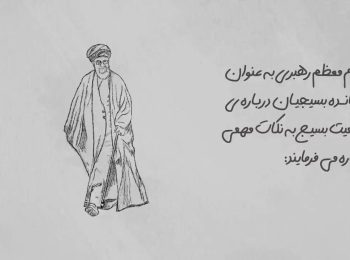 م معظم رهبری به عنوان
انده بسیجیان درباره ی
عیت بسیج به نکات مهمی
ره می فرمایند: